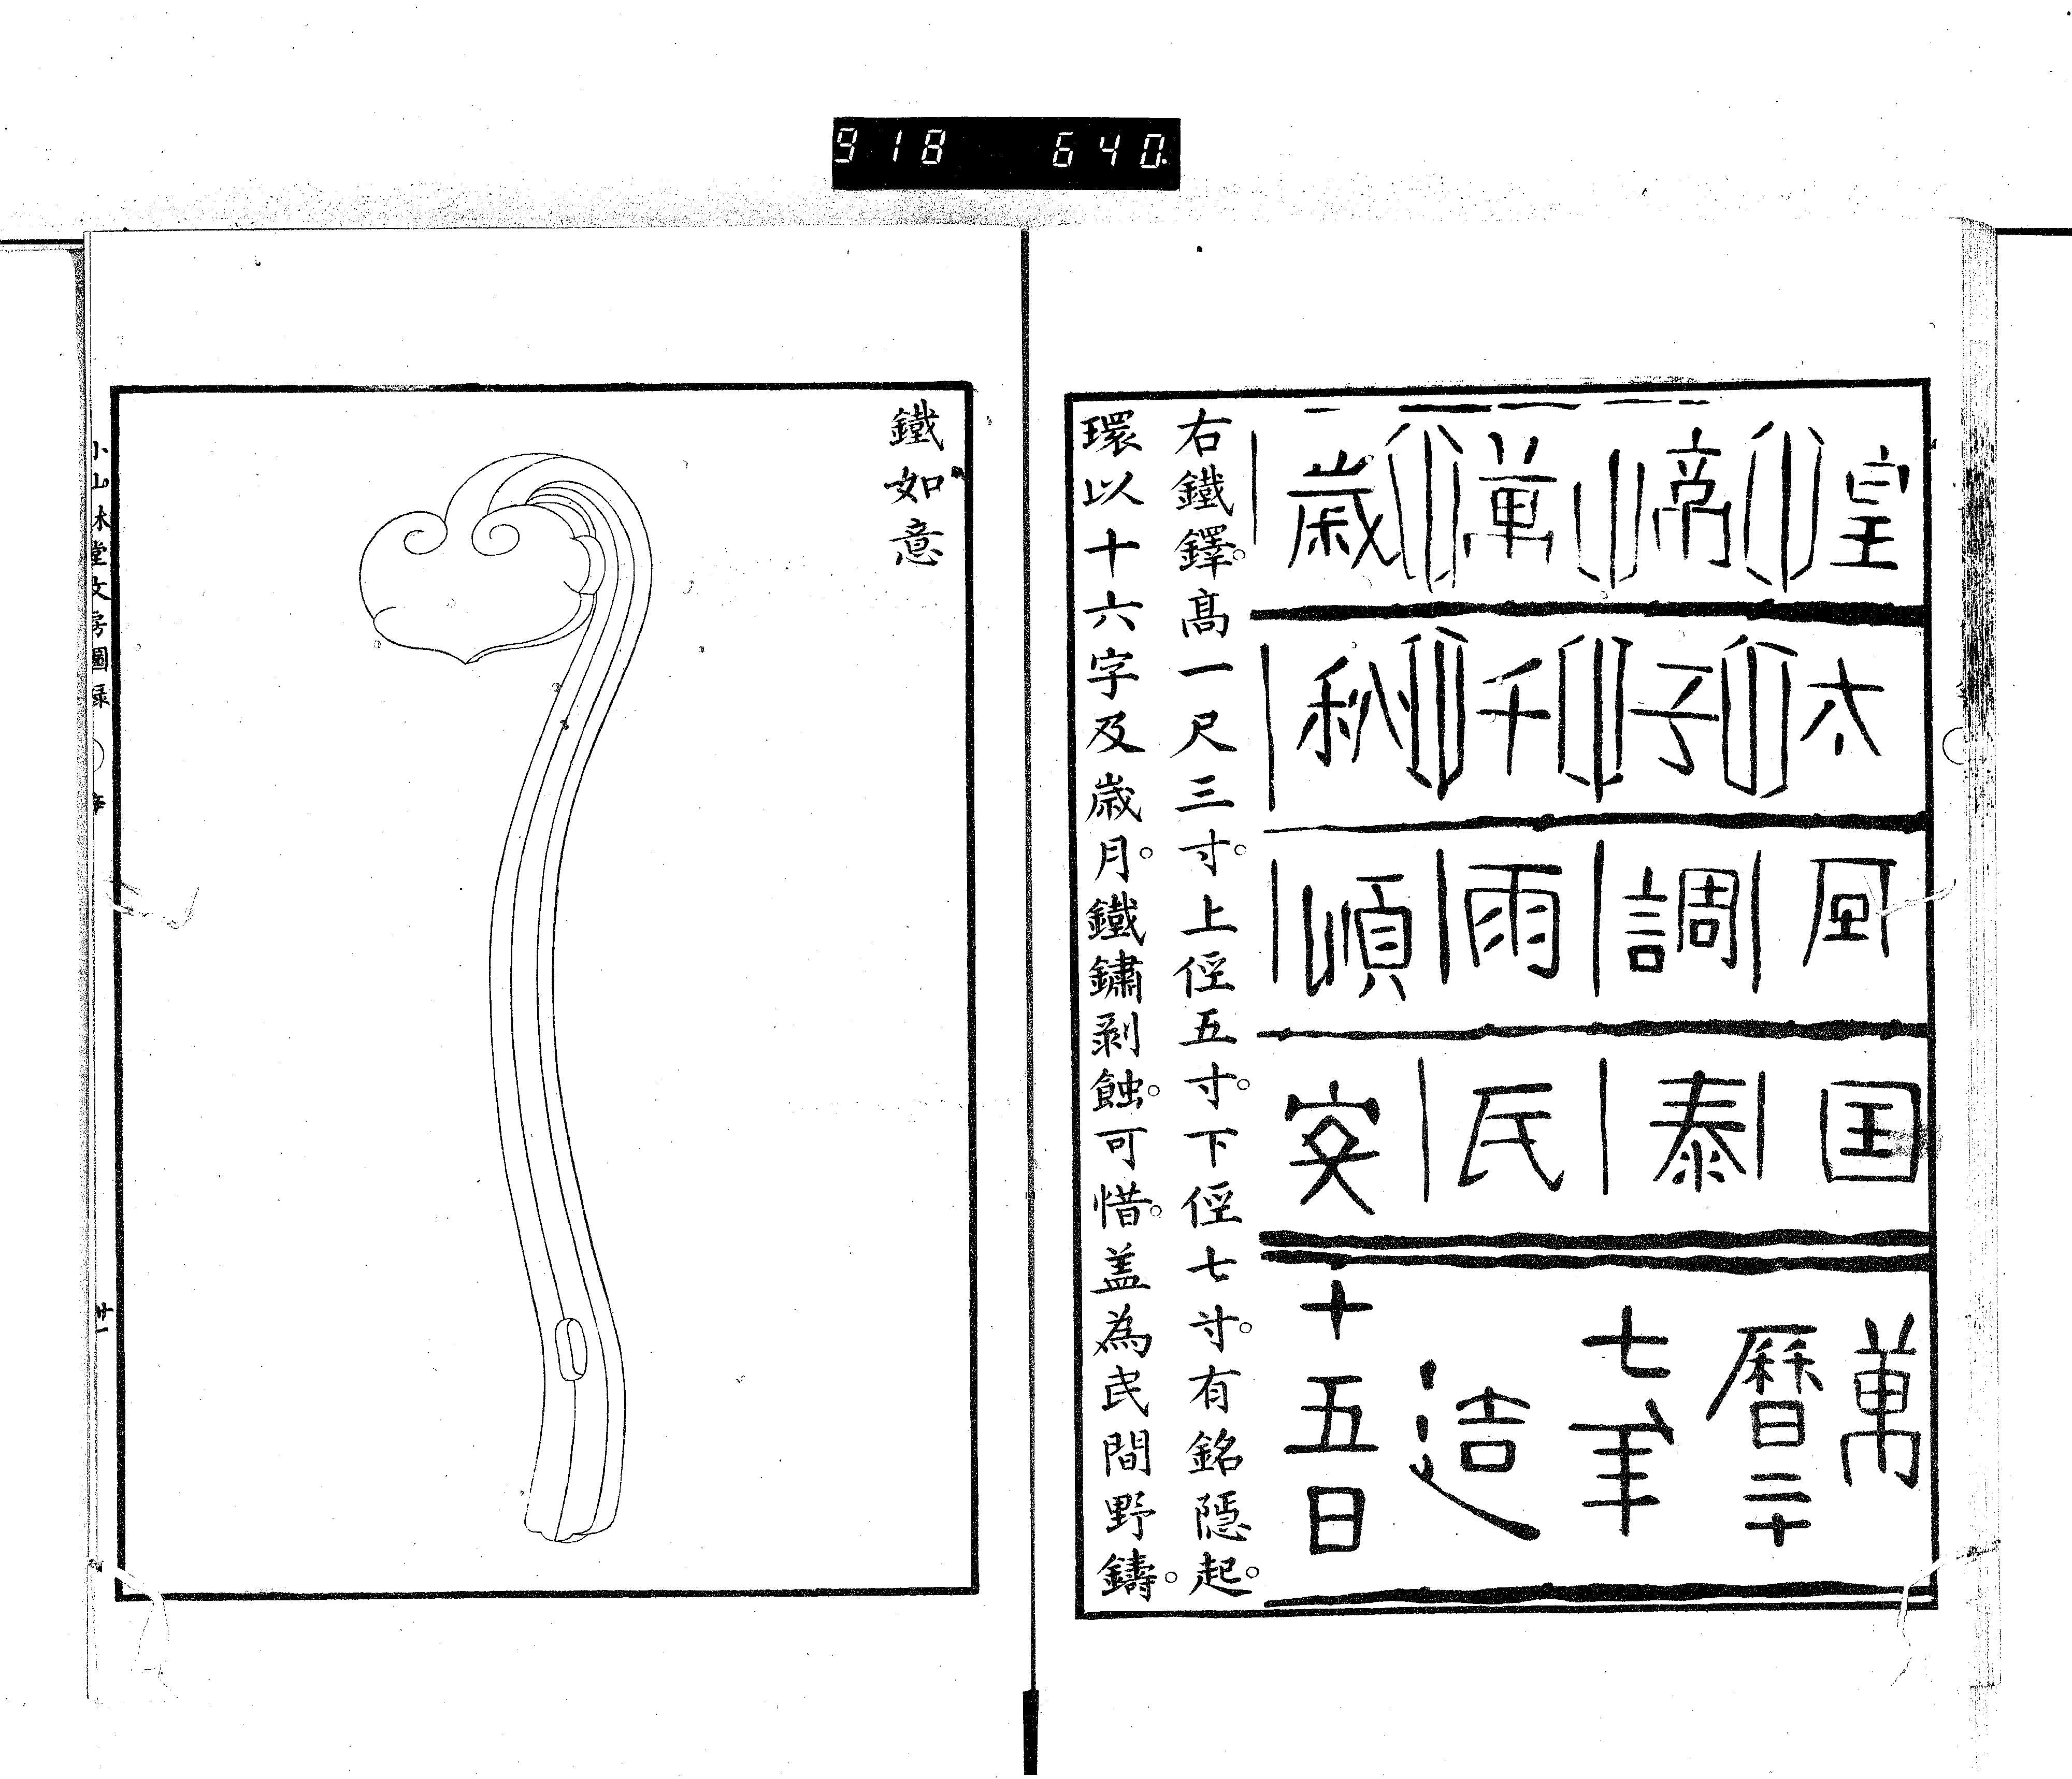 918 640.
皇帝萬歲
太子千秋
風調雨順
囯泰民安
萬
曆二十
七年
造
十五日
右鐵鐸。高一尺三寸。上徑五寸。下徑七寸。有銘隱起。
環以十六字及歲月。鐵鏽剥蝕。可惜。盖為民間野鑄。
鐵如意
小山林堂文房圖録
廿一